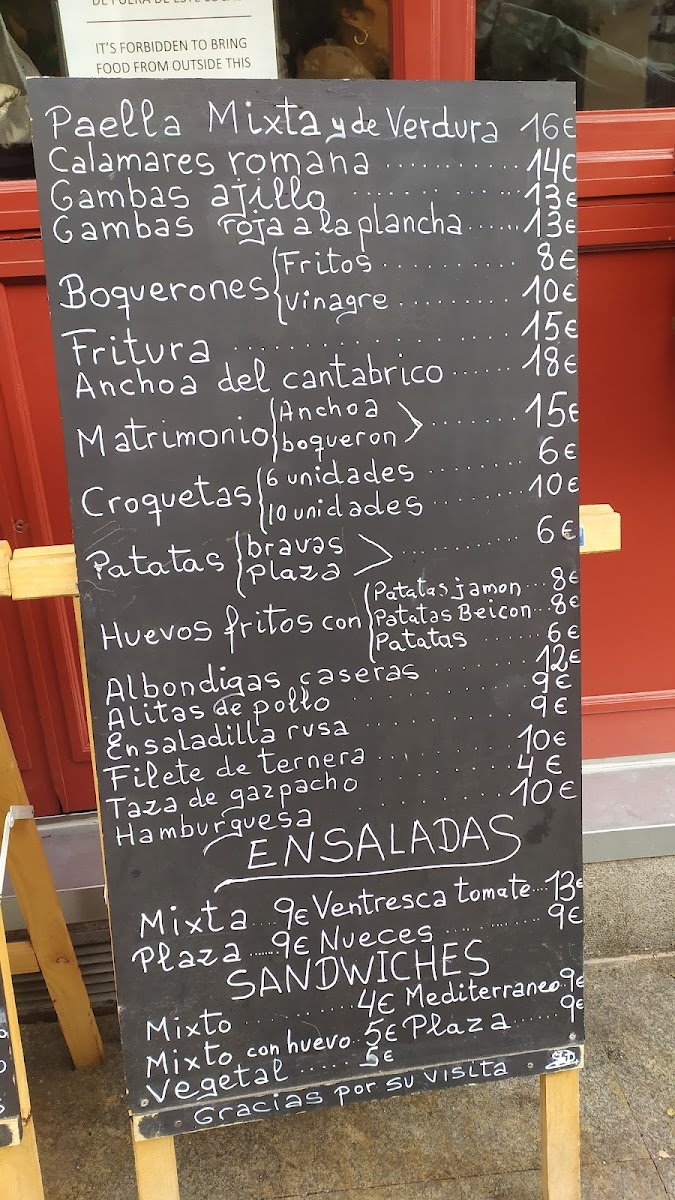 DE FUERA DE ESTE LOCAL
IT'S FORBIDDEN TO BRING
FOOD FROM OUTSIDE THIS
Paella Mixta y de Verdura 16€
Calamares romana ......... 14€
Gambas ajillo ......... 13€
Gambas roja a la plancha ...... 13€
Boquerones { Fritos ......... 8€
vinagre ......... 10€
Fritura ......... 15€
Anchoa del cantabrico ...... 18€
Matrimonio { Anchoa
boqueron > ......... 15€
Croquetas { 6 unidades ......... 6€
10 unidades ......... 10€
Patatas { bravas
plaza > ......... 6€
Huevos fritos con { Patatas jamon ... 8€
Patatas Beicon ... 8€
Patatas ...... 6€
Albondigas caseras ......... 12€
Alitas de pollo ......... 9€
Ensaladilla rusa ......... 9€
Filete de ternera ......... 10€
Taza de gazpacho ......... 4€
Hamburguesa ......... 10€
ENSALADAS
Mixta ... 9€ Ventresca tomate ... 13€
Plaza ...... 9€ Nueces ......... 9€
SANDWICHES
Mixto ......... 4€ Mediterraneo 9€
Mixto con huevo .. 5€ Plaza ...... 9€
Vegetal ...... 5€
Gracias por su visita